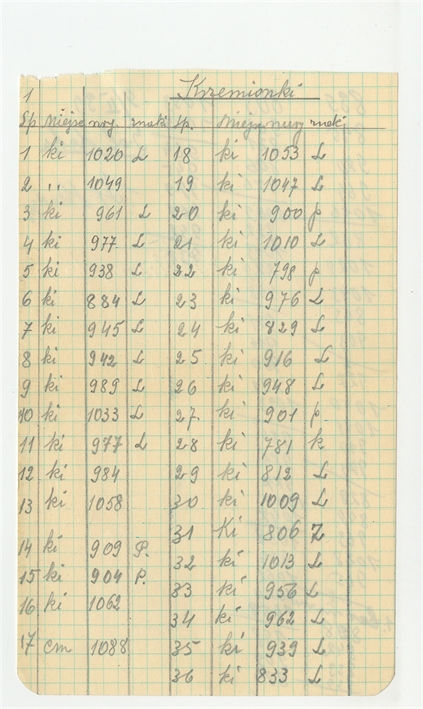 1
Krzemionki
Lp. miejsc nry znaki Lp. Miejsc nry znaki
1 ki 1020 L 18 ki 1053 L
2 ,, 1049 19 ki 1047 L
3 ki 961 L 20 ki 900 p
4 ki 977 L 21 ki 1010 L
5 ki 938 L 22 ki 798 p
6 ki 884 L 23 ki 976 L
7 ki 945 L 24 ki 829 L
8 ki 942 L 25 ki 916 L
9 ki 989 L 26 ki 948 L
10 ki 1033 L 27 ki 901 p.
11 ki 977 L 28 ki 781 k
12 ki 984 29 ki 812 L
13 ki 1058 30 ki 1009 L
31 Ki 806 Z
14 ki 909 P. 32 ki 1013 L
15 ki 904 P. 33 ki 956 L
16 ki 1062 34 ki 962 L
17 cm 1088 35 ki 939 L
36 ki 833 L